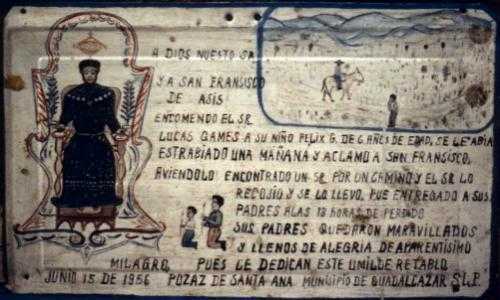 A DIOS NUESTO SR.
Y A SAN FRANSISCO
DE ASIS
ENCOMENDO EL SR.
LUCAS GAMES A SU NIÑO FELIX G. DE 6 AÑOS DE EDAD, SE LE ABIA
ESTRABIADO UNA MAÑANA Y ACLAMO A SAN FRANSISCO,
AVIENDOLO ENCONTRADO UN SR. POR UN CAMINO Y EL SR LO
RECOJIO Y SE LO LLEVO, FUE ENTREGADO A SUS
PADRES A LAS 18 HORAS DE PERDIDO
SUS PADRES QUEDARON MARAVILLADOS
Y LLENOS DE ALEGRIA DE APARENTISIMO
MILAGRO, PUES LE DEDICAN ESTE UMILDE RETABLO
JUNIO 15 DE 1956 POZAZ DE SANTA ANA MUNICIPIO DE GUADALCAZAR S.L.P.